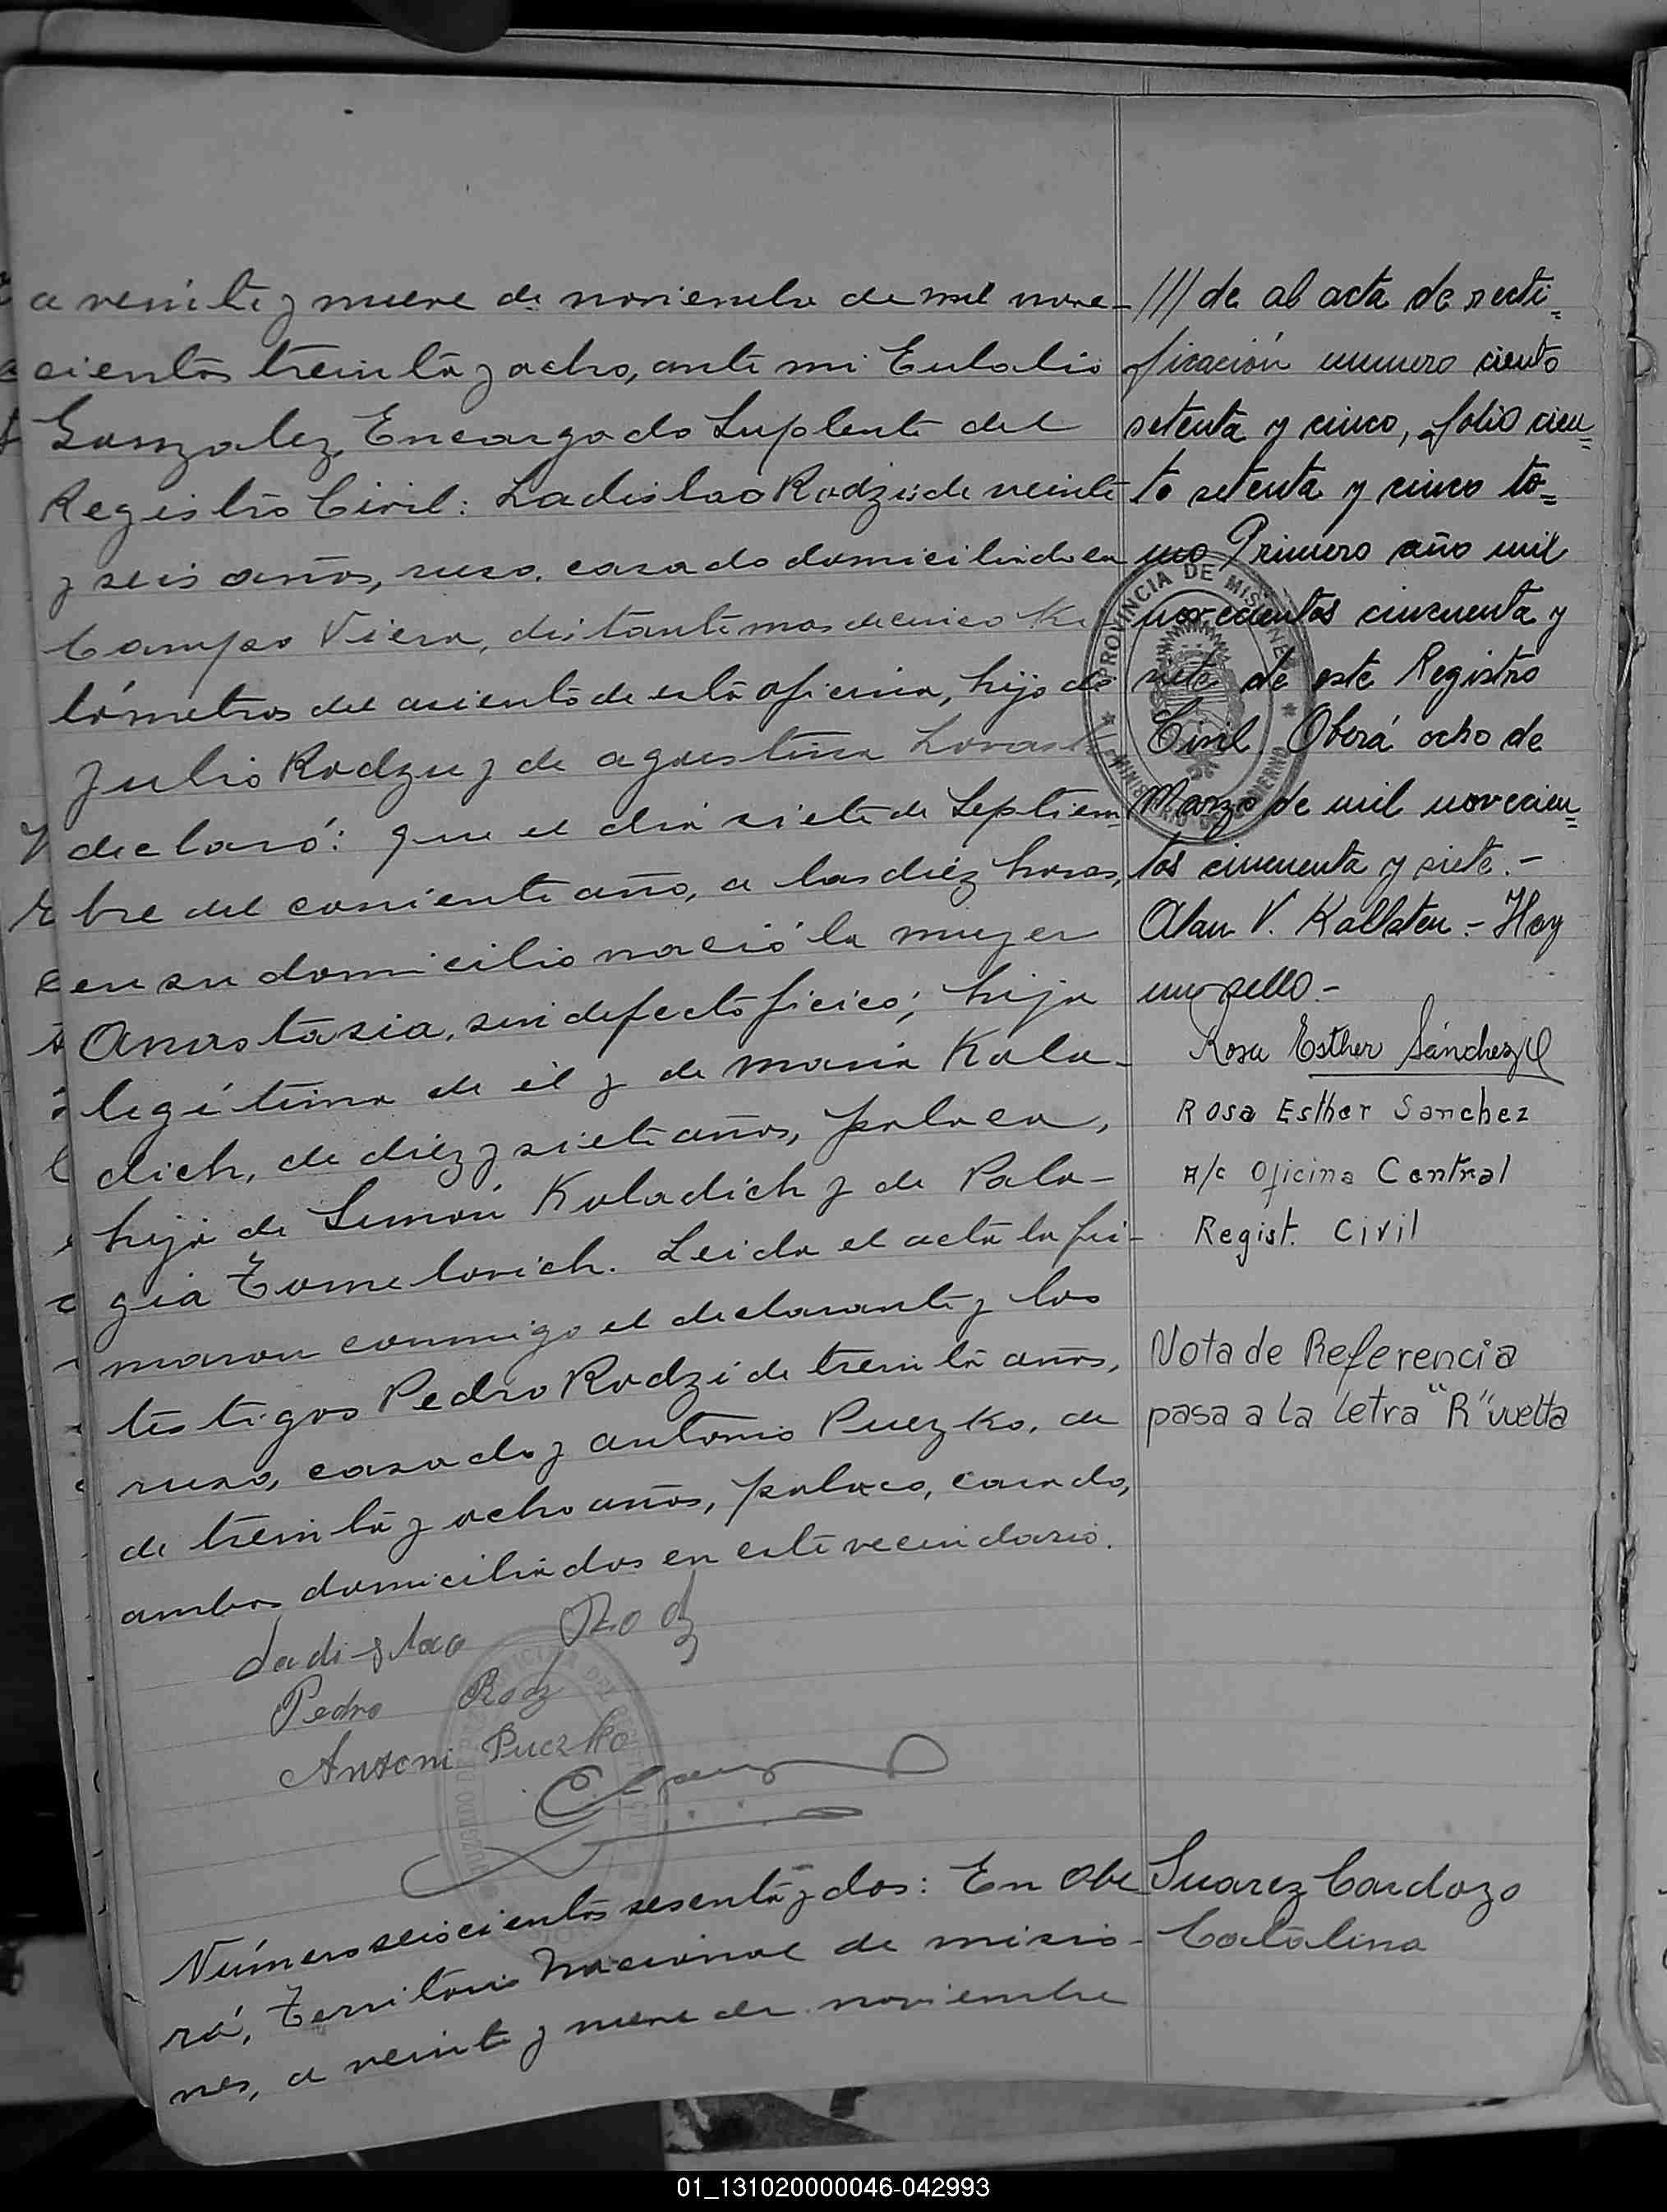 a veinte y nueve de noviembre de mil nove-
cientos treinta y ocho, ante mi Eulalio
Gonzalez Encargado Suplente del
Registro Civil: Ladislao Rodzi de veinte
y seis años, ruso, casado domiciliado en
Campo Viera, distante mas de cinco Ki
lómetros del asiento de esta oficina, hijo de
Julio Rodzu y de agustina
declaró: que el dia siete de Septiem
bre del corriente año, a las diéz horas,
en su domicilio nació la mujer
Anastasia, sin defecto ficico; hija
legítima de él y de maria Kola-
dich, de diéz y siete años, polaca,
hija de Simón Koladich y de Pala-
gia Tomelovich. Leida el acta la fir-
maron conmigo el declarante y los
testigos Pedro Rodzi de treinta años,
ruso, casado y antonio Puezko, de
de treinta y ocho años, polaco, casado,
ambos domiciliados en este vecindario.
Ladislao Rodz
Pedro Rodz
Antoni Puczko
Número seiscientos sesenta y dos: En Obe
rá, Territorio Nacional de misio-
nes, a veinte y nueve de noviembre
/// de al acta de recti=
ficación numero ciento
setenta y cinco, folio cien=
to setenta y cinco to=
mo Primero año mil
novecientos cincuenta y
siete de este Registro
Civil. Oberá ocho de
Marzo de mil novecien=
tos cincuenta y siete.-
Alan V. Kallsten.- Hay
un sello.-
Rosa Esther Sánchez
Rosa Esther Sanchez
A/c Oficina Central
Regist. Civil
Nota de Referencia
pasa a la letra "R" vuelta
Suarez Cardozo
Catalina
PROVINCIA DE MISIONES
MINISTERIO DE GOBIERNO
01_131020000046-042993